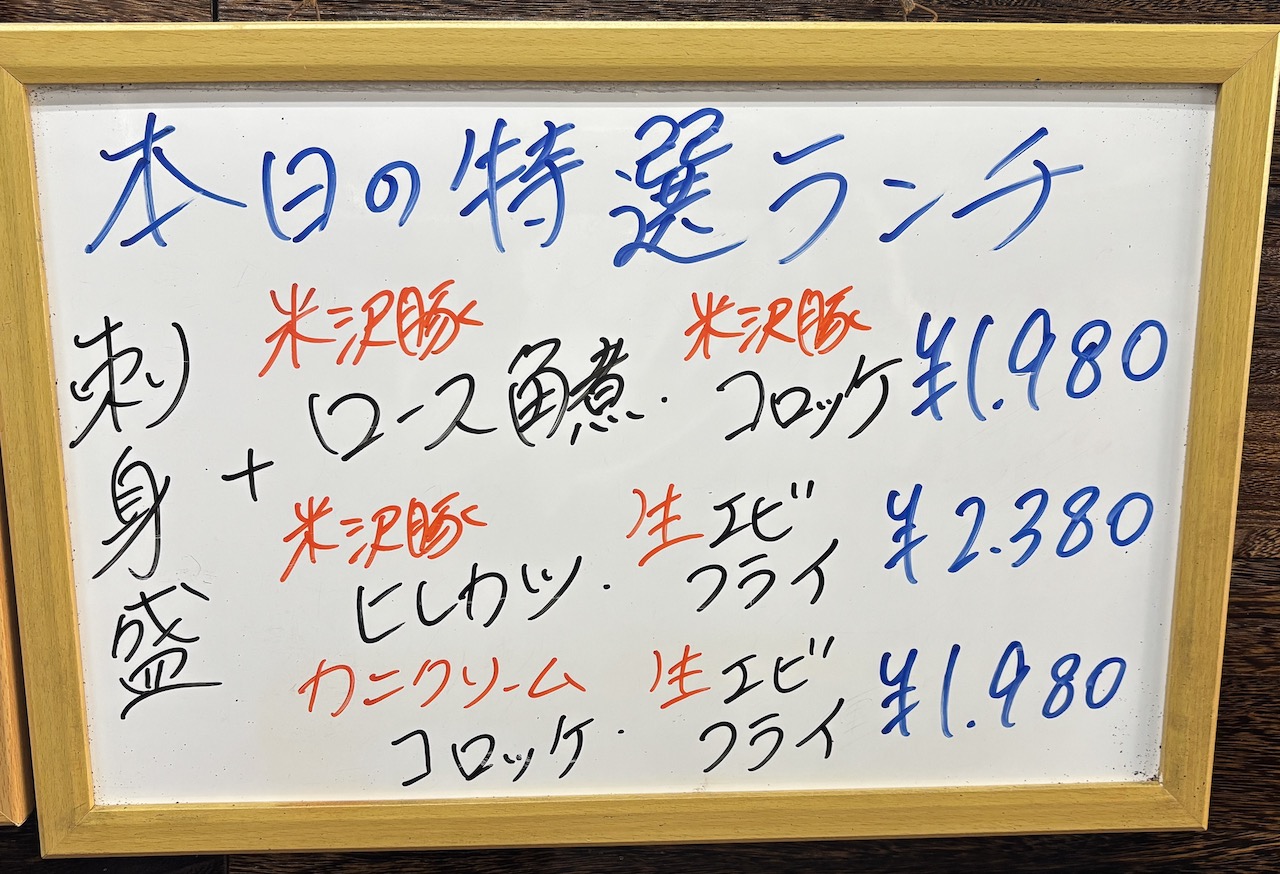 本日の特選ランチ
刺身盛
+
米沢豚 米沢豚
ロース角煮・コロッケ ¥1.980
米沢豚 生エビ
ヒレカツ・フライ ¥2.380
カニクリーム 生エビ
コロッケ・フライ ¥1.980